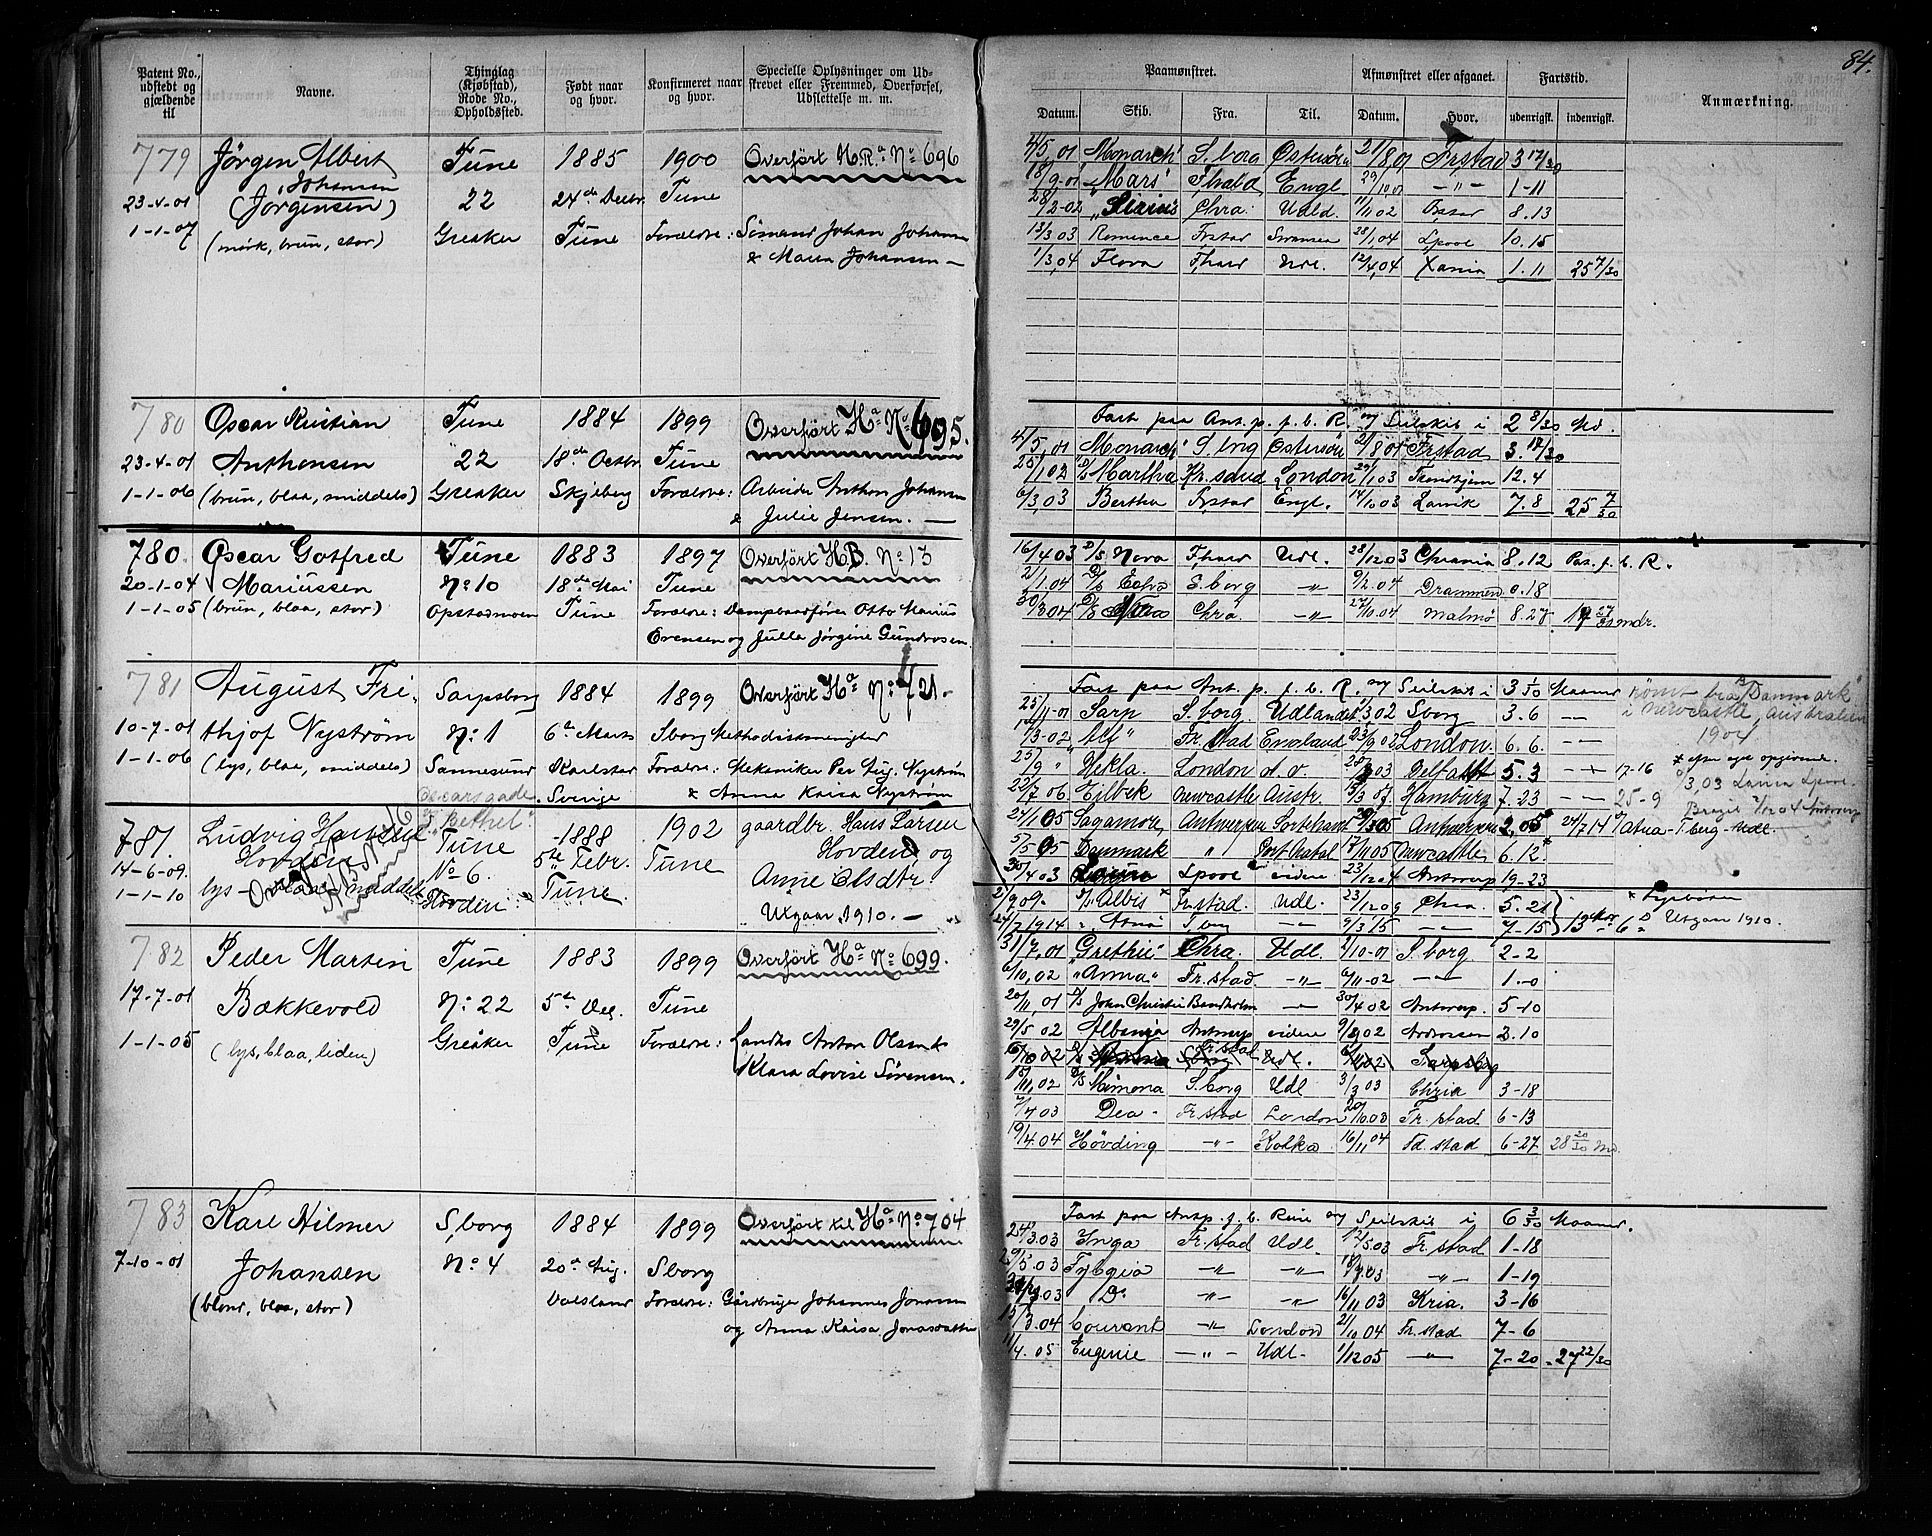 84.
Patent No., udstedt og gjældende til
Navne.
Thinglag (Kjøbstad), Rode No., Opholdssted.
Født naar og hvor.
Konfirmeret naar og hvor.
Specielle Oplysninger om Udstrevet eller Fremmed, Overførsel, Udslettelse m. m.
Paamønstret.
Afmønstret eller afgaaet.
Fartstid.
Anmærkning.
Datum. Skib. Fra. Til. Datum. Hvor. udenrigsk. indenrigsk.
779 Jörgen Albert Tune 1885 1900 Overført H.R.a No 696
Johansen
23-4-01 (Jörgensen) 22 24de Decbr. Tune
1-1-07 (mörk, brun, stor) Greaker Tune Forældre: Sömand Johan Johansen
& Maren Johansen
4/5,01 Monarch S.borg 21/8 01 Frstad 3 17/30
18/9-01 Mars Fhald Engl. 29/10 01 —"— 1-11
28/2-02 Chra. Udld. 11/11 02 8.13
13/3 03 Romance Frstad 28/1,04 Lpool 10.15
1/3,04 Flora Fhald Udl. 12/4,04 Xania 1.11 25 7/30
780 Oscar Kristian Tune 1884 1899 Overført Ha No 695.
23-4-01 Anthonsen 22 18de Octbr. Tune
1-1-06 (brun, blaa, middels) Greaker Skjeberg Forældre: Arbeider Anthon Johansen
& Julie Jensen.
Fart paa Ant. p. f. b. R. og Seilskib i 2 8/30 Md.
4/5,01 Monarch 21/8 01 Frstad 3.17/30
25/1,02 D/S Martha Kr.sand London 29/1,03 Trondhjem 12.4
6/3,03 Bertha Frstad Engl. 14/10 03 Larvik 7.8 25 7/30
780 Oscar Gotfred Tune 1883 1897 Overført H.B. No 13
20-1-04 Mariussen No 10 18de Mai Tune
1-1-05 (brun, blaa, stor) Opstadmoen Tune Forældre: Dampbaadfører Otto Marius
Evensen og Julla Jörgine Gundersen
16/4 03 D/S Nora Fhald Udl. 28/12 03 Chrania 8.12 Pas. f. b. R.
2/1.04 S.borg —"— 9/2.04 Drammen 0.18
30/3 04 Chra. —"— 27/10.04 Malmø 8.27
781 August Fri- Sarpsborg 1884 1899 Overført Ha No 721.
10-7-01 thjof Nyström No 1 6te Marts Sborg Methodistmenighet
1-1-06 (lys, blaa, middels) Sannesund Karlstad Forældre: Mekaniker Per Aug. Nyström
Oscarsgade. Sverige & Anna Kaisa Nyström
"Bethel"
Fart paa Ant. p. f. b. R. og Seilskib i 3 5/30 Maaner
Röm- fra "Danmark"
i Newcastle, Australien
1904
23/11-01 Sarp S.borg. Udlandet 3 02 Sborg 3.6 —
3-02 "Alf" Fr.stad England 23/9 02 London. 6.6. —
Hekla. London d.o. Belfast 5.3 17-16
22/7 06 Eilbek Newcastle Austr. 13/3 07. Hamburg 7-23 — 25-9
27/1 05 Sagamore Antwerpen 3 05 Antwerpen 2,05 24/7 14 Atna-T.berg-Udl.
5/5 05 Danmark " Port Natal 17/11 05 Newcastle 6.12
30/4 03 Lpool videre 23/12 04 Antwerp. 19-23
781 Ludvig Hansen Tune 1888 1902 gaardbr. Hans Larsen
14-6-09. Hovden No 6. 5te Febr. Tune Hovden og
1-1-10 lys - blaa, middels Hovden Tune. Anne Olsdtr
Utgaar 1910. —
2/9 09. D/S Albis Fr.stad. Udl. 23/12 09 Chra. 5.21 Utgaar 1910.
24/7 1914 Atna T.berg — 9/3 15 — 7-15
782 Peder Martin Tune 1883 1899 Overført Ha No 699.
17-7-01 Bækkevold No 22 5te Dec. Tune
1-1-05 (lys, blaa, liden) Greåker Tune Forældre: Landhs Anton Olsen &
Klara Lovise Sørensen.
31/7,01 Grethe Chra. Udl. 2/10-01 S.borg. 2-2
6/10,02 "Anna" Fr.stad. —"— 6/11-02 —"— 1-0
20/11,01 D/S John Christie Bandholm — 30/4 02 Antwerp. 5-10
29/5 02 Albania Antwerp videre 9/8 02 3.10
10 02 Udl. Sarpsborg
15/11,02 D/S Mimona S.borg Udl 3/3 03 Chria 3-18
7/4 03 Dea Fr.stad London 20/10 03 Fr.stad 6-13
19/4.04 Høvding —"— Kotka 16/11 04 Fd.stad 6-27 28 20/30 Md.
783 Karl Hilmer S.borg 1884 1899 Overført til Ha No 704
7-10-01 Johansen No 4 20de Aug. Sborg
(blond, blaa, stor) Dalsland Forældre: Gårdbruger Johannes Jonasen
og Anna Kaisa Jonasdatter
Fart paa Antp. f. b. Reise og Seilskib i 6 3/30 Maaner.
24/3.03 Inga Fr.stad Udl. 12/5.03 Fr.stad 1-18
29/5.03 Fylgia —"— —"— 18/7.03 —"— 1-19
Do —"— —"— 16/11 03 Kria. 3-16
15/3.04 Courant —"— London 21/10 04 Fr.stad. 7-6
11/4.05 Eugenie —"— Udl. 1/12 05 —"— 7-20 27 22/30